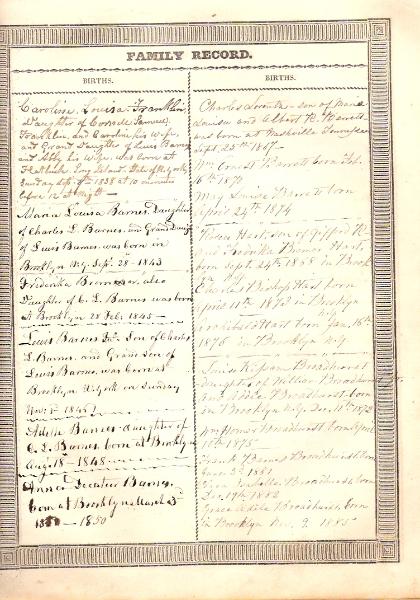 FAMILY RECORD.
BIRTHS.
Caroline Louisa Franklin,
Daughter of Cornell Samuel
Franklin, and Caroline his Wife,
and Grand Daughter of Lewis Barnes
and Abby his wife. was born at
Flatbush Long Island. State of N.York,
Sunday Sept. 1838 at 10 minutes
before 12 at night
Maria Louisa Barnes, Daughter
of Charles L. Barnes, and Grand Daughter
of Lewis Barnes was born in
Brooklyn N.Y. Sept. 28 - 1843
Frederika also
Daughter of C. L. Barnes was born
at Brooklyn 28 Feb. 1845
Lewis Barnes Son of Charles
L. Barnes, and Grand Son of
Lewis Barnes, was born at
Brooklyn N.York on Sunday
Nov.
Adele Barnes daughter of
C. L. Barnes, born at Brooklyn
Aug. 18 - 1848
Anna Decatur Barnes.
born at Brooklyn March
1850
BIRTHS.
Charles son of Maria
Louisa and Elbert H. Barrett
was born at Nashville Tennessee
Sept. 25th 1867
Wm Ernest Barrett born Feb.
16th
May Louise Barrett born
April 24th 1874
Hart, son of
and Fredrika Barnes Hart,
born Sept. 24th 1868 in Brook
Bishop Hart born
April 11th in Brooklyn
Hart born Jan. 16th
1876 in Brooklyn N.Y.
Louise Broadhurst
daughter of William Broadhurst
and Adele Broadhurst born
in Brooklyn N.Y. Dec.
Wm Broadhurst born
10th 1875
Frank Barnes Broadhurst born
1881
Isabella Broadhurst born
Dec. 19th 1882
Grace Adele Broadhurst, born
in Brooklyn Nov. 9. 1885